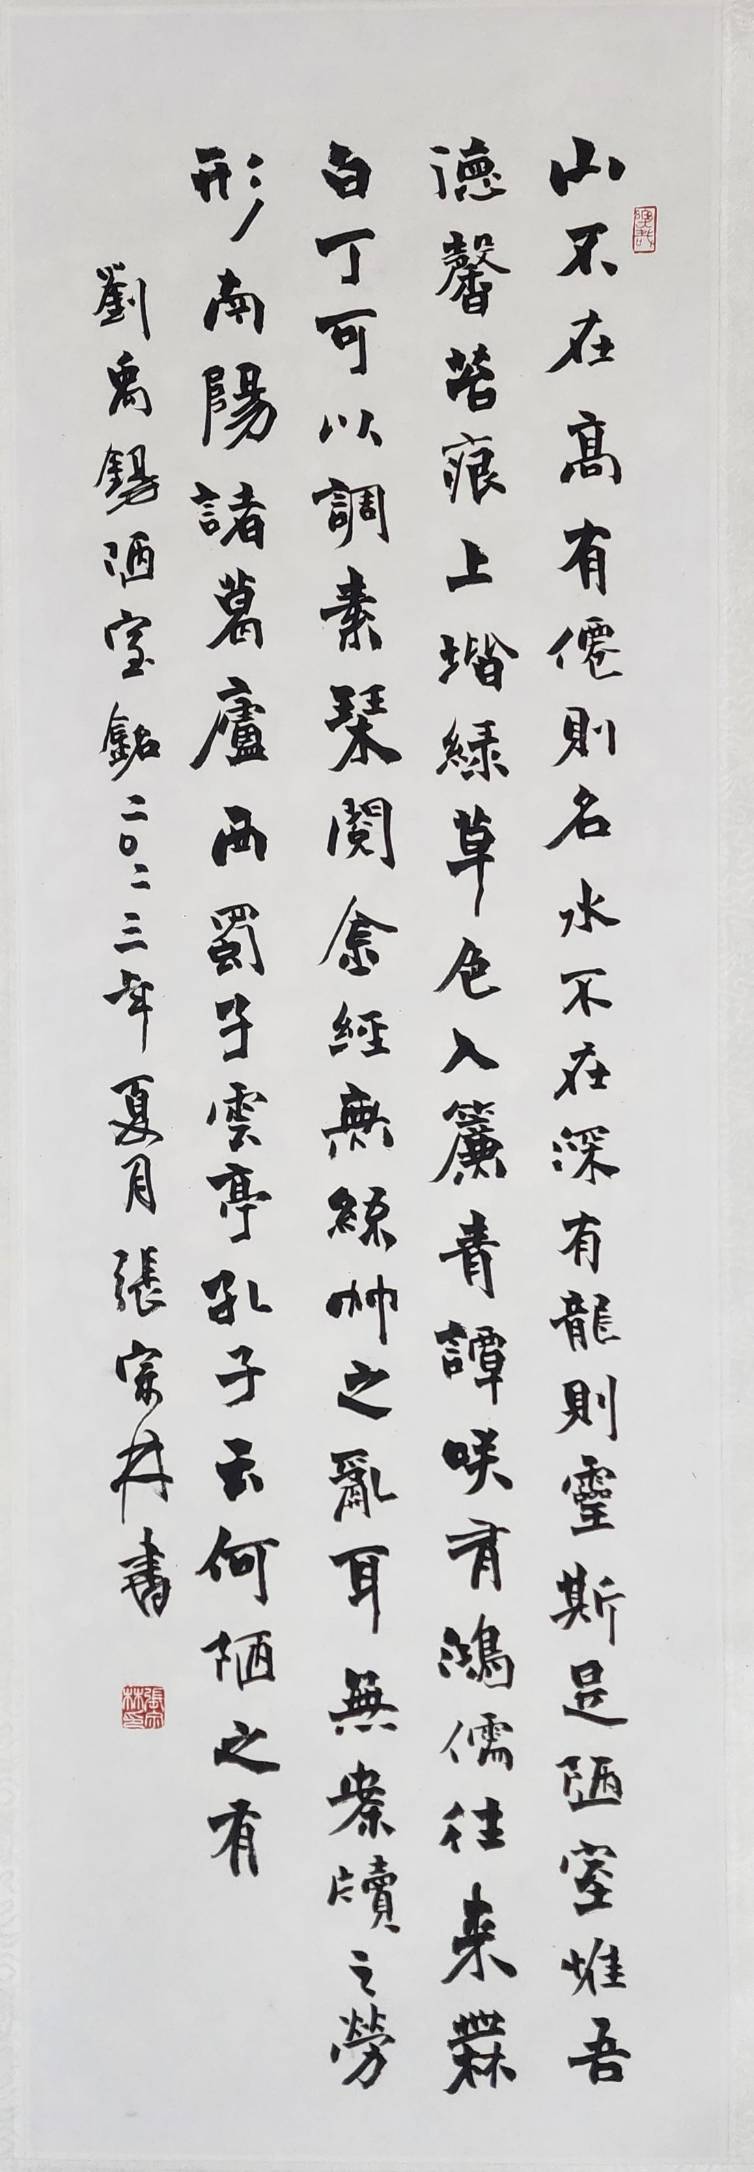 山不在高有僊則名水不在深有龍則靈斯是陋室惟吾
德馨苔痕上堦緑草色入簾青譚咲有鴻儒往来無
白丁可以調素琹閲金經無絲竹之亂耳無案牘之勞
形南陽諸葛廬西蜀子雲亭孔子云何陋之有
劉禹錫陋室銘二〇二三年夏月張宗林書
張宗林印